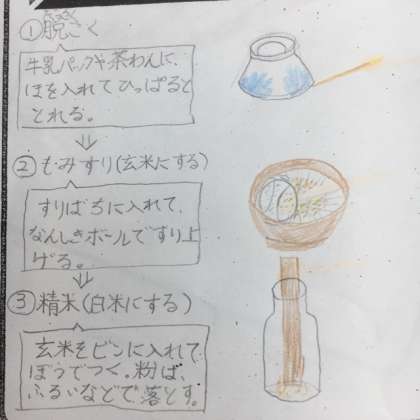 ①脱こく
牛乳パックや茶わんに、
ほを入れてひっぱると
とれる。
②もみすり(玄米にする)
すりばちに入れて、
なんしきボールですり上
げる。
③精米(白米にする)
玄米をビンに入れて
ぼうでつく。粉は、
ふるいなどで落とす。